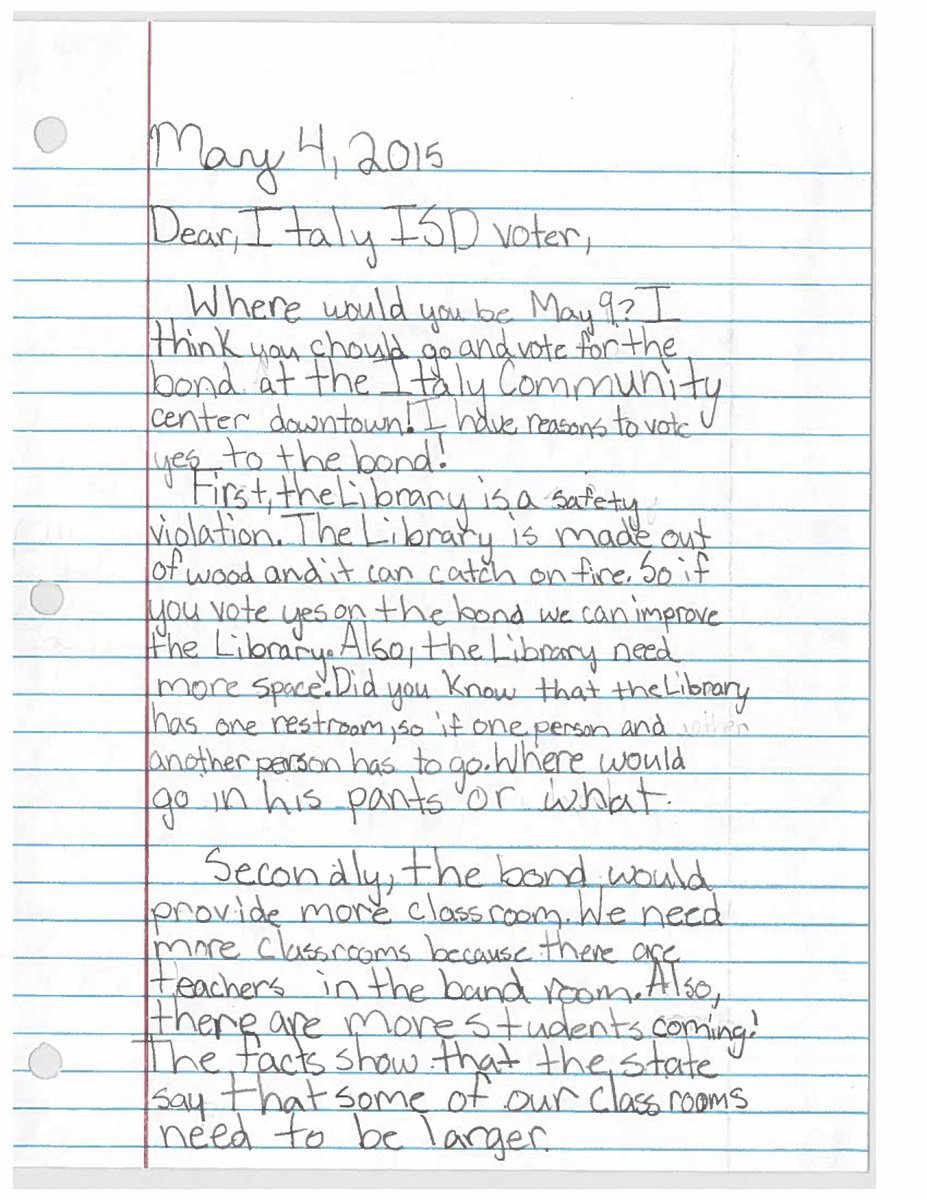 May 4, 2015
Dear, Italy ISD voter,
Where would you be May 9? I
think you chould go and vote for the
bond at the Italy Community
center downtown! I have reasons to vote
yes to the bond!
First, the Library is a safety
violation. The Library is made out
of wood and it can catch on fire. So if
you vote yes on the bond we can improve
the Library. Also, the Library need
more space. Did you know that the Library
has one restroom, so if one person and
another person has to go. Where would
go in his pants or what.
Secondly, the bond would
provide more classroom. We need
more classrooms because there are
teachers in the band room. Also,
there are more students coming!
The facts show that the state
say that some of our classrooms
need to be larger.